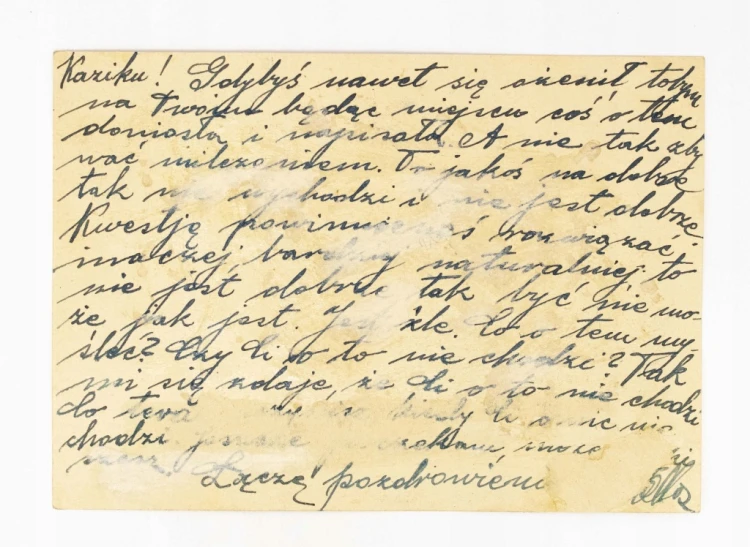 Kaziku! Gdybyś nawet się ożenił tobym
na Twoim będąc miejscu coś o tem
doniosła i napisała. A nie tak zby
wać milczeniem. To jakoś na dobre
tak nie wychodzi i nie jest dobrze.
Kwestję powinieneś rozwiązać
inaczej, bardziej naturalniej, to
nie jest dobrze tak być nie mo-
że jak jest. Jest źle. Co o tem my
śleć? Czy Ci o to nie chodzi? Tak
mi się zdaje, że Ci o to nie chodzi
Co tera kiedy Ci o nic nie
chodzi może
Łączę pozdrowieni